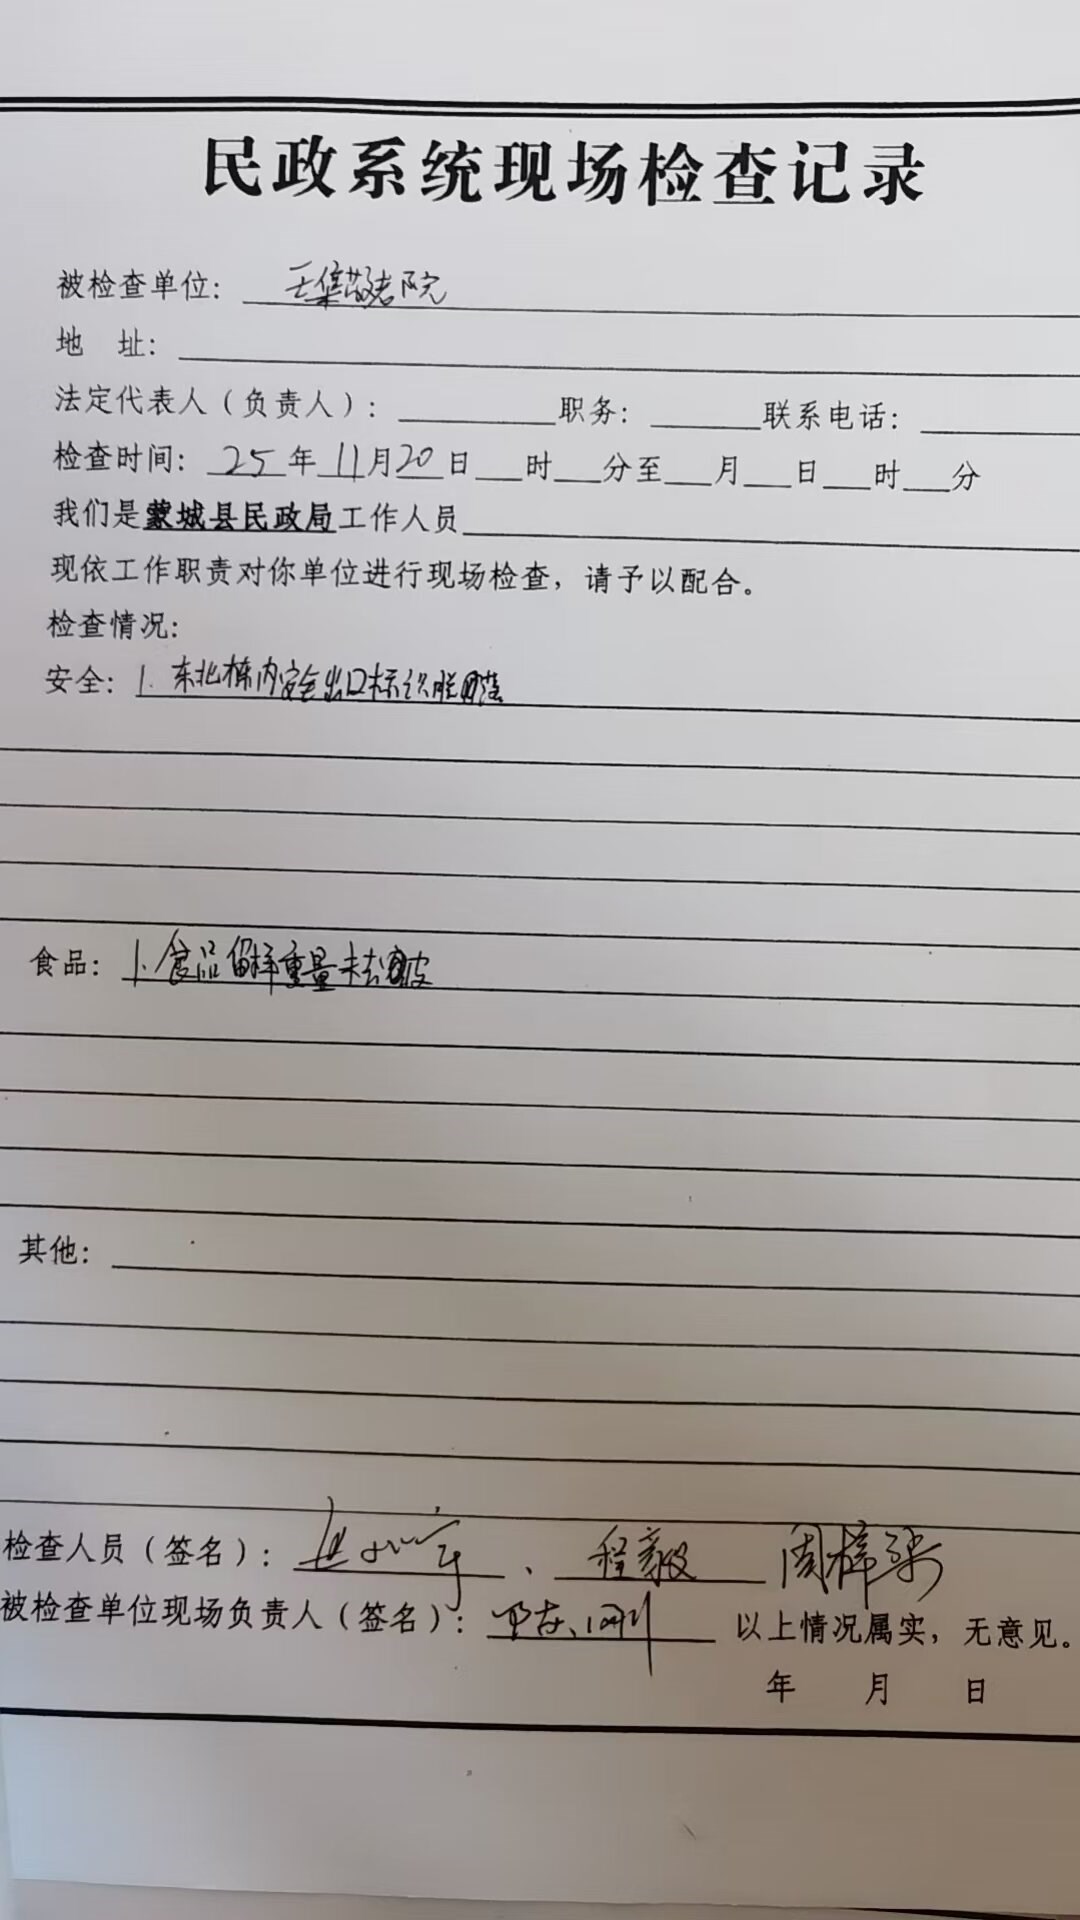 民政系统现场检查记录
被检查单位：王集敬老院
地 址：
法定代表人（负责人）： 职务： 联系电话：
检查时间：25年11月20日 时 分至 月 日 时 分
我们是蒙城县民政局工作人员
现依工作职责对你单位进行现场检查，请予以配合。
检查情况：
安全：1.东北栋内安全出口标识脱落
食品：1.食品留样重量未达
其他：
检查人员（签名）： 、程毅 周梓
被检查单位现场负责人（签名）： 以上情况属实，无意见。
年 月 日